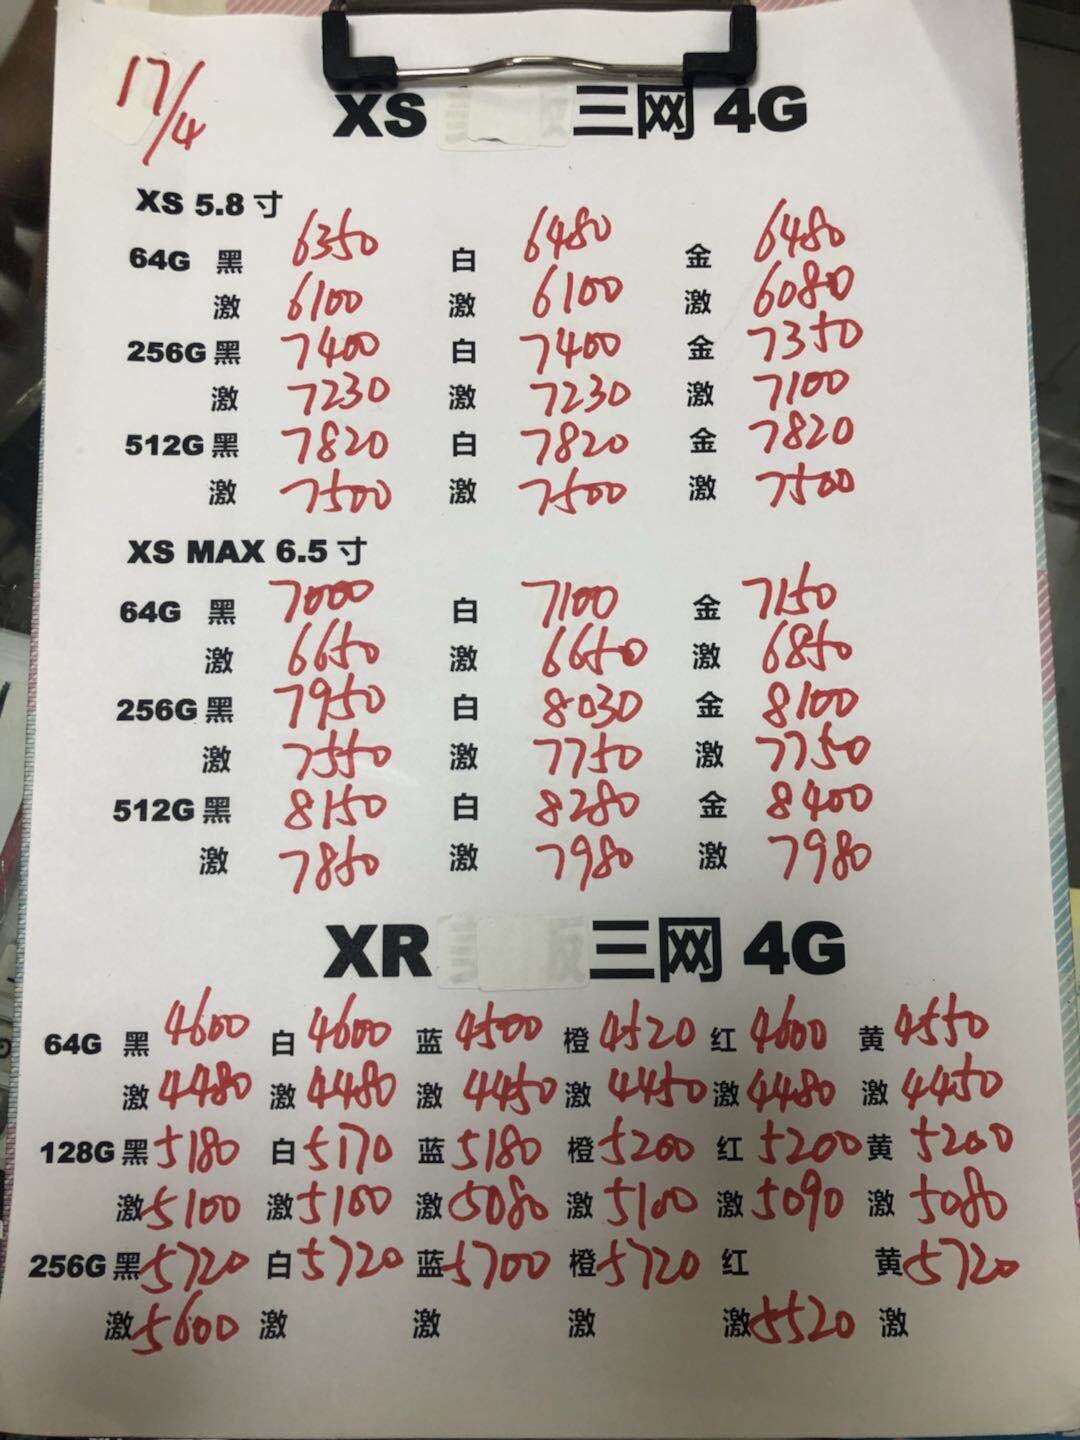 17/4
XS 三网 4G
XS 5.8 寸
64G 黑 6350 白 6480 金 6480
激 6100 激 6100 激 6080
256G 黑 7400 白 7400 金 7350
激 7230 激 7230 激 7100
512G 黑 7820 白 7820 金 7820
激 7500 激 7500 激 7500
XS MAX 6.5 寸
64G 黑 7000 白 7100 金 7150
激 6650 激 6650 激 6850
256G 黑 7950 白 8030 金 8100
激 7550 激 7750 激 7750
512G 黑 8150 白 8280 金 8400
激 7850 激 7980 激 7980
XR 三网 4G
64G 黑 4600 白 4600 蓝 4500 橙 4520 红 4600 黄 4550
激 4480 激 4480 激 4450 激 4450 激 4480 激 4450
128G 黑 5180 白 5170 蓝 5180 橙 5200 红 5200 黄 5200
激 5100 激 5100 激 5080 激 5100 激 5090 激 5080
256G 黑 5720 白 5720 蓝 5700 橙 5720 红 黄 5720
激 5600 激 激 激 激 5520 激